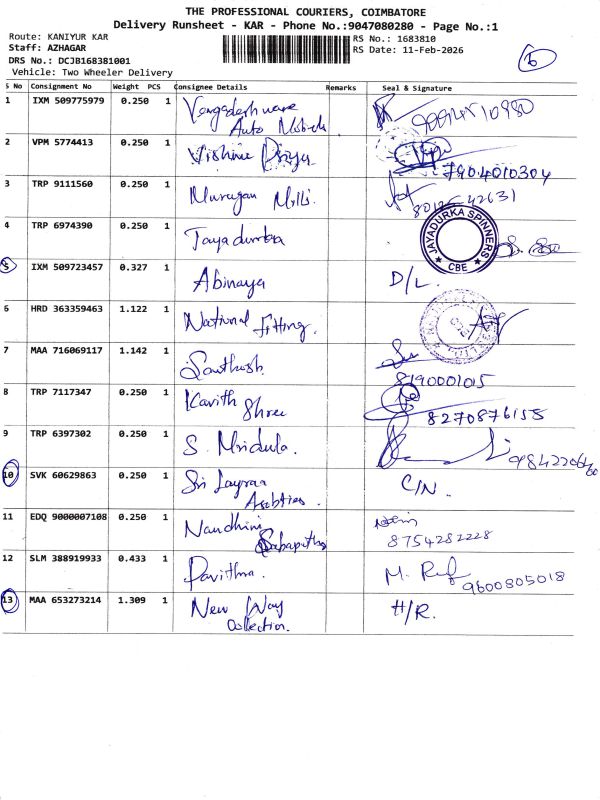 THE PROFESSIONAL COURIERS, COIMBATORE
Delivery Runsheet - KAR - Phone No.:9047080280 - Page No.:1
Route: KANIYUR KAR
RS No.: 1683810
Staff: AZHAGAR
RS Date: 11-Feb-2026
DRS No.: DCJB168381001
Vehicle: Two Wheeler Delivery
S No Consignment No Weight PCS Consignee Details Remarks Seal & Signature
1 IXM 509775979 0.250 1
Auto
2 VPM 5774413 0.250 1 Vishnu Priya 7904010304
3 TRP 9111560 0.250 1 Murugan Mills.
4 TRP 6974390 0.250 1 Jayadurka JAYADURKA SPINNERS CBE
5 IXM 509723457 0.327 1 Abinaya D/L.
6 HRD 363359463 1.122 1 National fitting.
7 MAA 716069117 1.142 1 Santhosh
8190001015
8 TRP 7117347 0.250 1 Kavith
Shree 8270876155
9 TRP 6397302 0.250 1 S. Mridula.
10 SVK 60629863 0.250 1 Sri C/N.
11 EDQ 9000007108 0.250 1 Nandhini
8754282228
12 SLM 388919933 0.433 1 Pavithra.
9600805018
13 MAA 653273214 1.309 1 New Way H/R.
Collection.